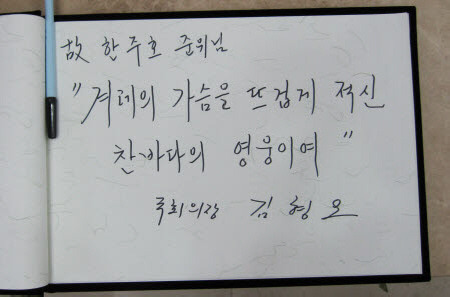 故 한주호 준위님
"겨레의 가슴을 뜨겁게 적신
찬바다의 영웅이여"
국회의장 김형오